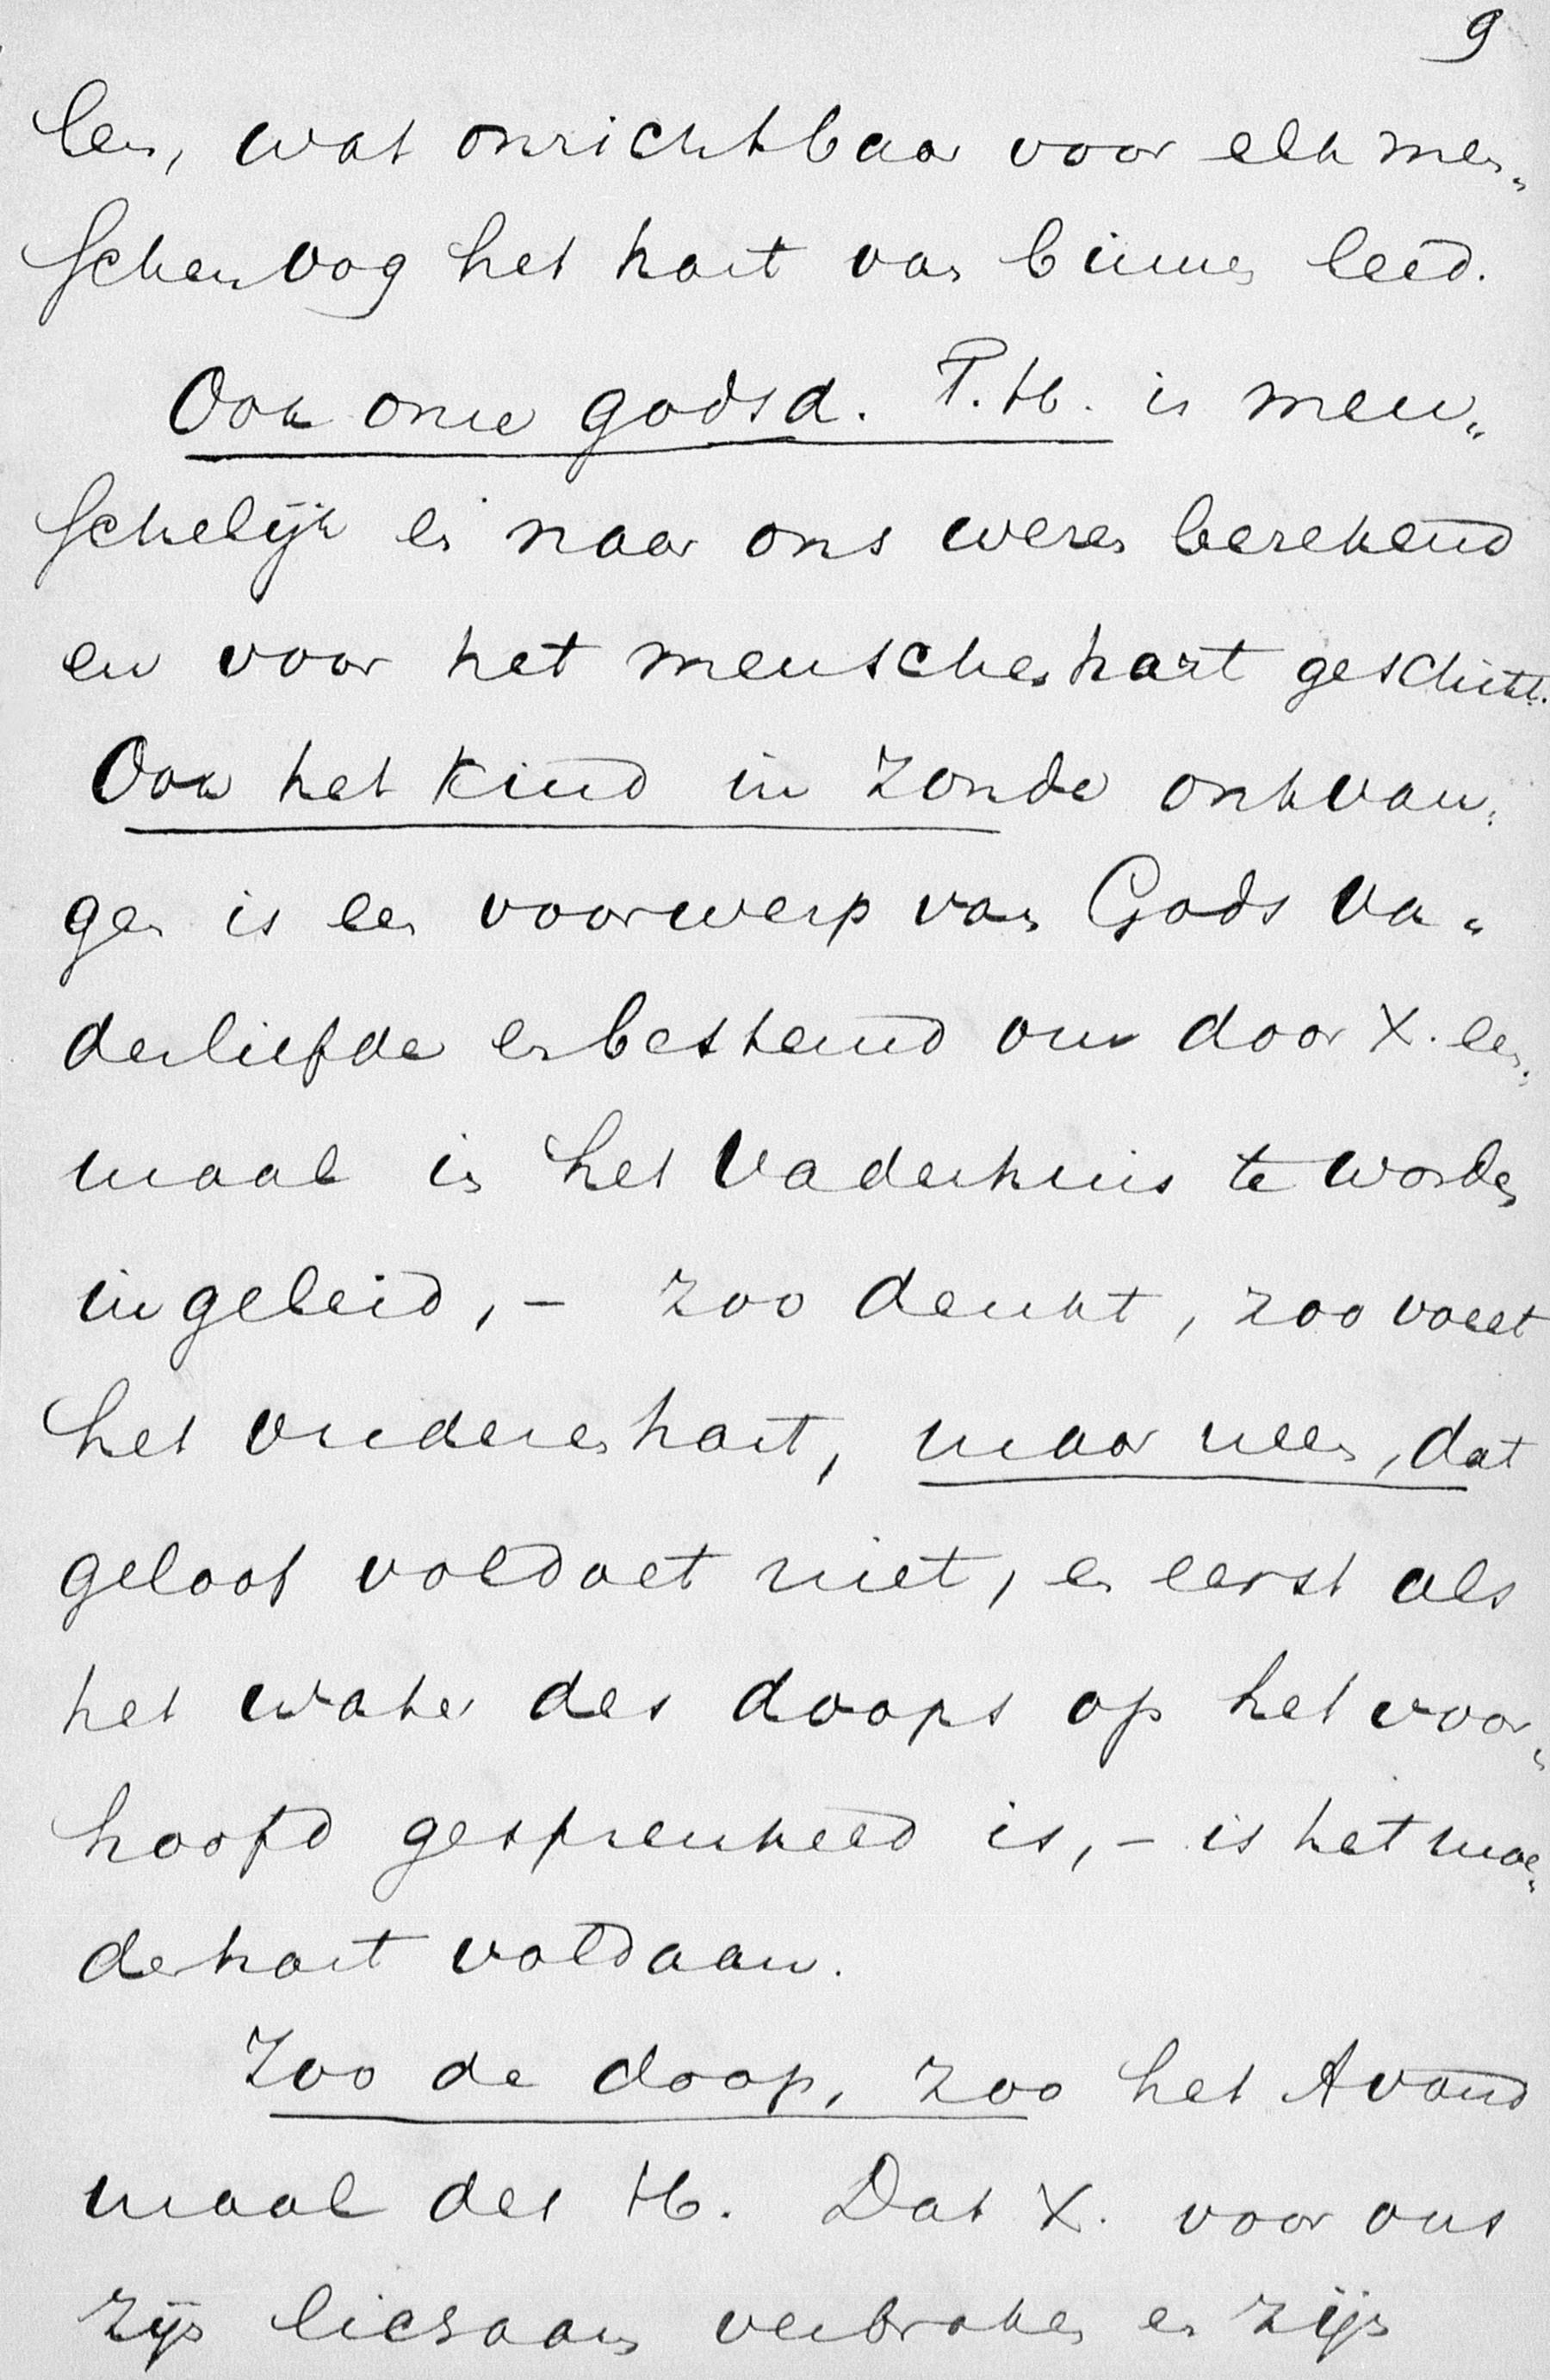 9
len, wat onzichtbaar voor elk men„
schenoog het hart van binnen leed.
Ook onze godsd. T. H. is men„
schelijk en naar ons wezen berekend
en voor het menschenhart geschikt.
Ook het kind in zonde ontvan„
gen is een voorwerp van Gods Va„
derliefde en bestemd om door X. een„
maal in het Vaderhuis te worden
ingeleid, – zoo denkt, zoo voelt
het ouderenhart, maar neen, dat
geloof voldoet niet, en eerst als
het water des doops op het voor„
hoofd gesprenkeld is, – is het moe„
derhart voldaan.
Zoo de doop, zoo het Avond
maal des H. Dat X. voor ons
zijn lichaam verbroken en zijn